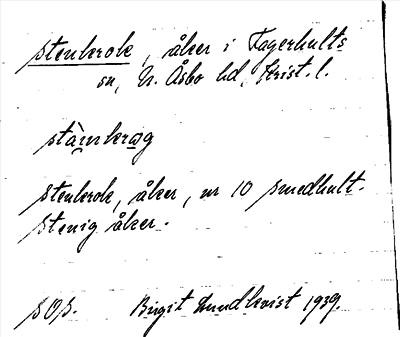 stenkrok, åker i Fagerhults
sn, N. Åsbo hd, Krist. l.
stàinkrog
Stenkrok, åker, nr 10 Smedhult.
Stenig åker.
SOS. Birgit Lundkvist 1939.